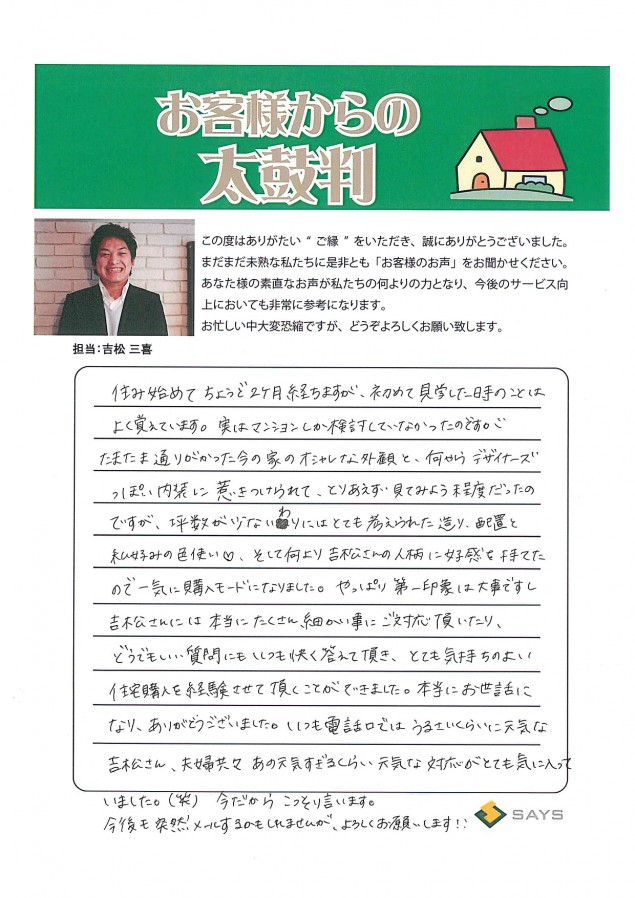 お客様からの
太鼓判
この度はありがたい“ご縁”をいただき、誠にありがとうございました。
まだまだ未熟な私たちに是非とも「お客様のお声」をお聞かせください。
あなた様の素直なお声が私たちの何よりの力となり、今後のサービス向
上においても非常に参考になります。
お忙しい中大変恐縮ですが、どうぞよろしくお願い致します。
担当:吉松 三喜
住み始めてちょうど2ヶ月経ちますが、初めて見学した日時のことは
よく覚えています。実はマンションしか検討していなかったのですが
たまたま通りがかった今の家のオシャレな外観と、何やらデザイナーズ
っぽい内装に惹きつけられて、とりあえず見てみよう程度だったの
ですが、坪数が少ないわりにはとても考えられた造り、配置と
私好みの色使い♡、そして何より吉松さんの人柄に好感を持てた
ので一気に購入モードになりました。やっぱり第一印象は大事ですし
吉松さんには本当にたくさん細かい事にご対応頂いたり、
どうでもいい質問にもいつも快く答えて頂き、とても気持ちのよい
住宅購入を経験させて頂くことができました。本当にお世話に
なり、ありがとうございました。いつも電話口ではうるさいくらいに元気な
吉松さん、夫婦共々あの元気すぎるくらい元気な対応がとても気に入って
いました。(笑) 今だからこっそり言います。
今後も突然メールするかもしれませんが、よろしくお願いします!!
SAYS